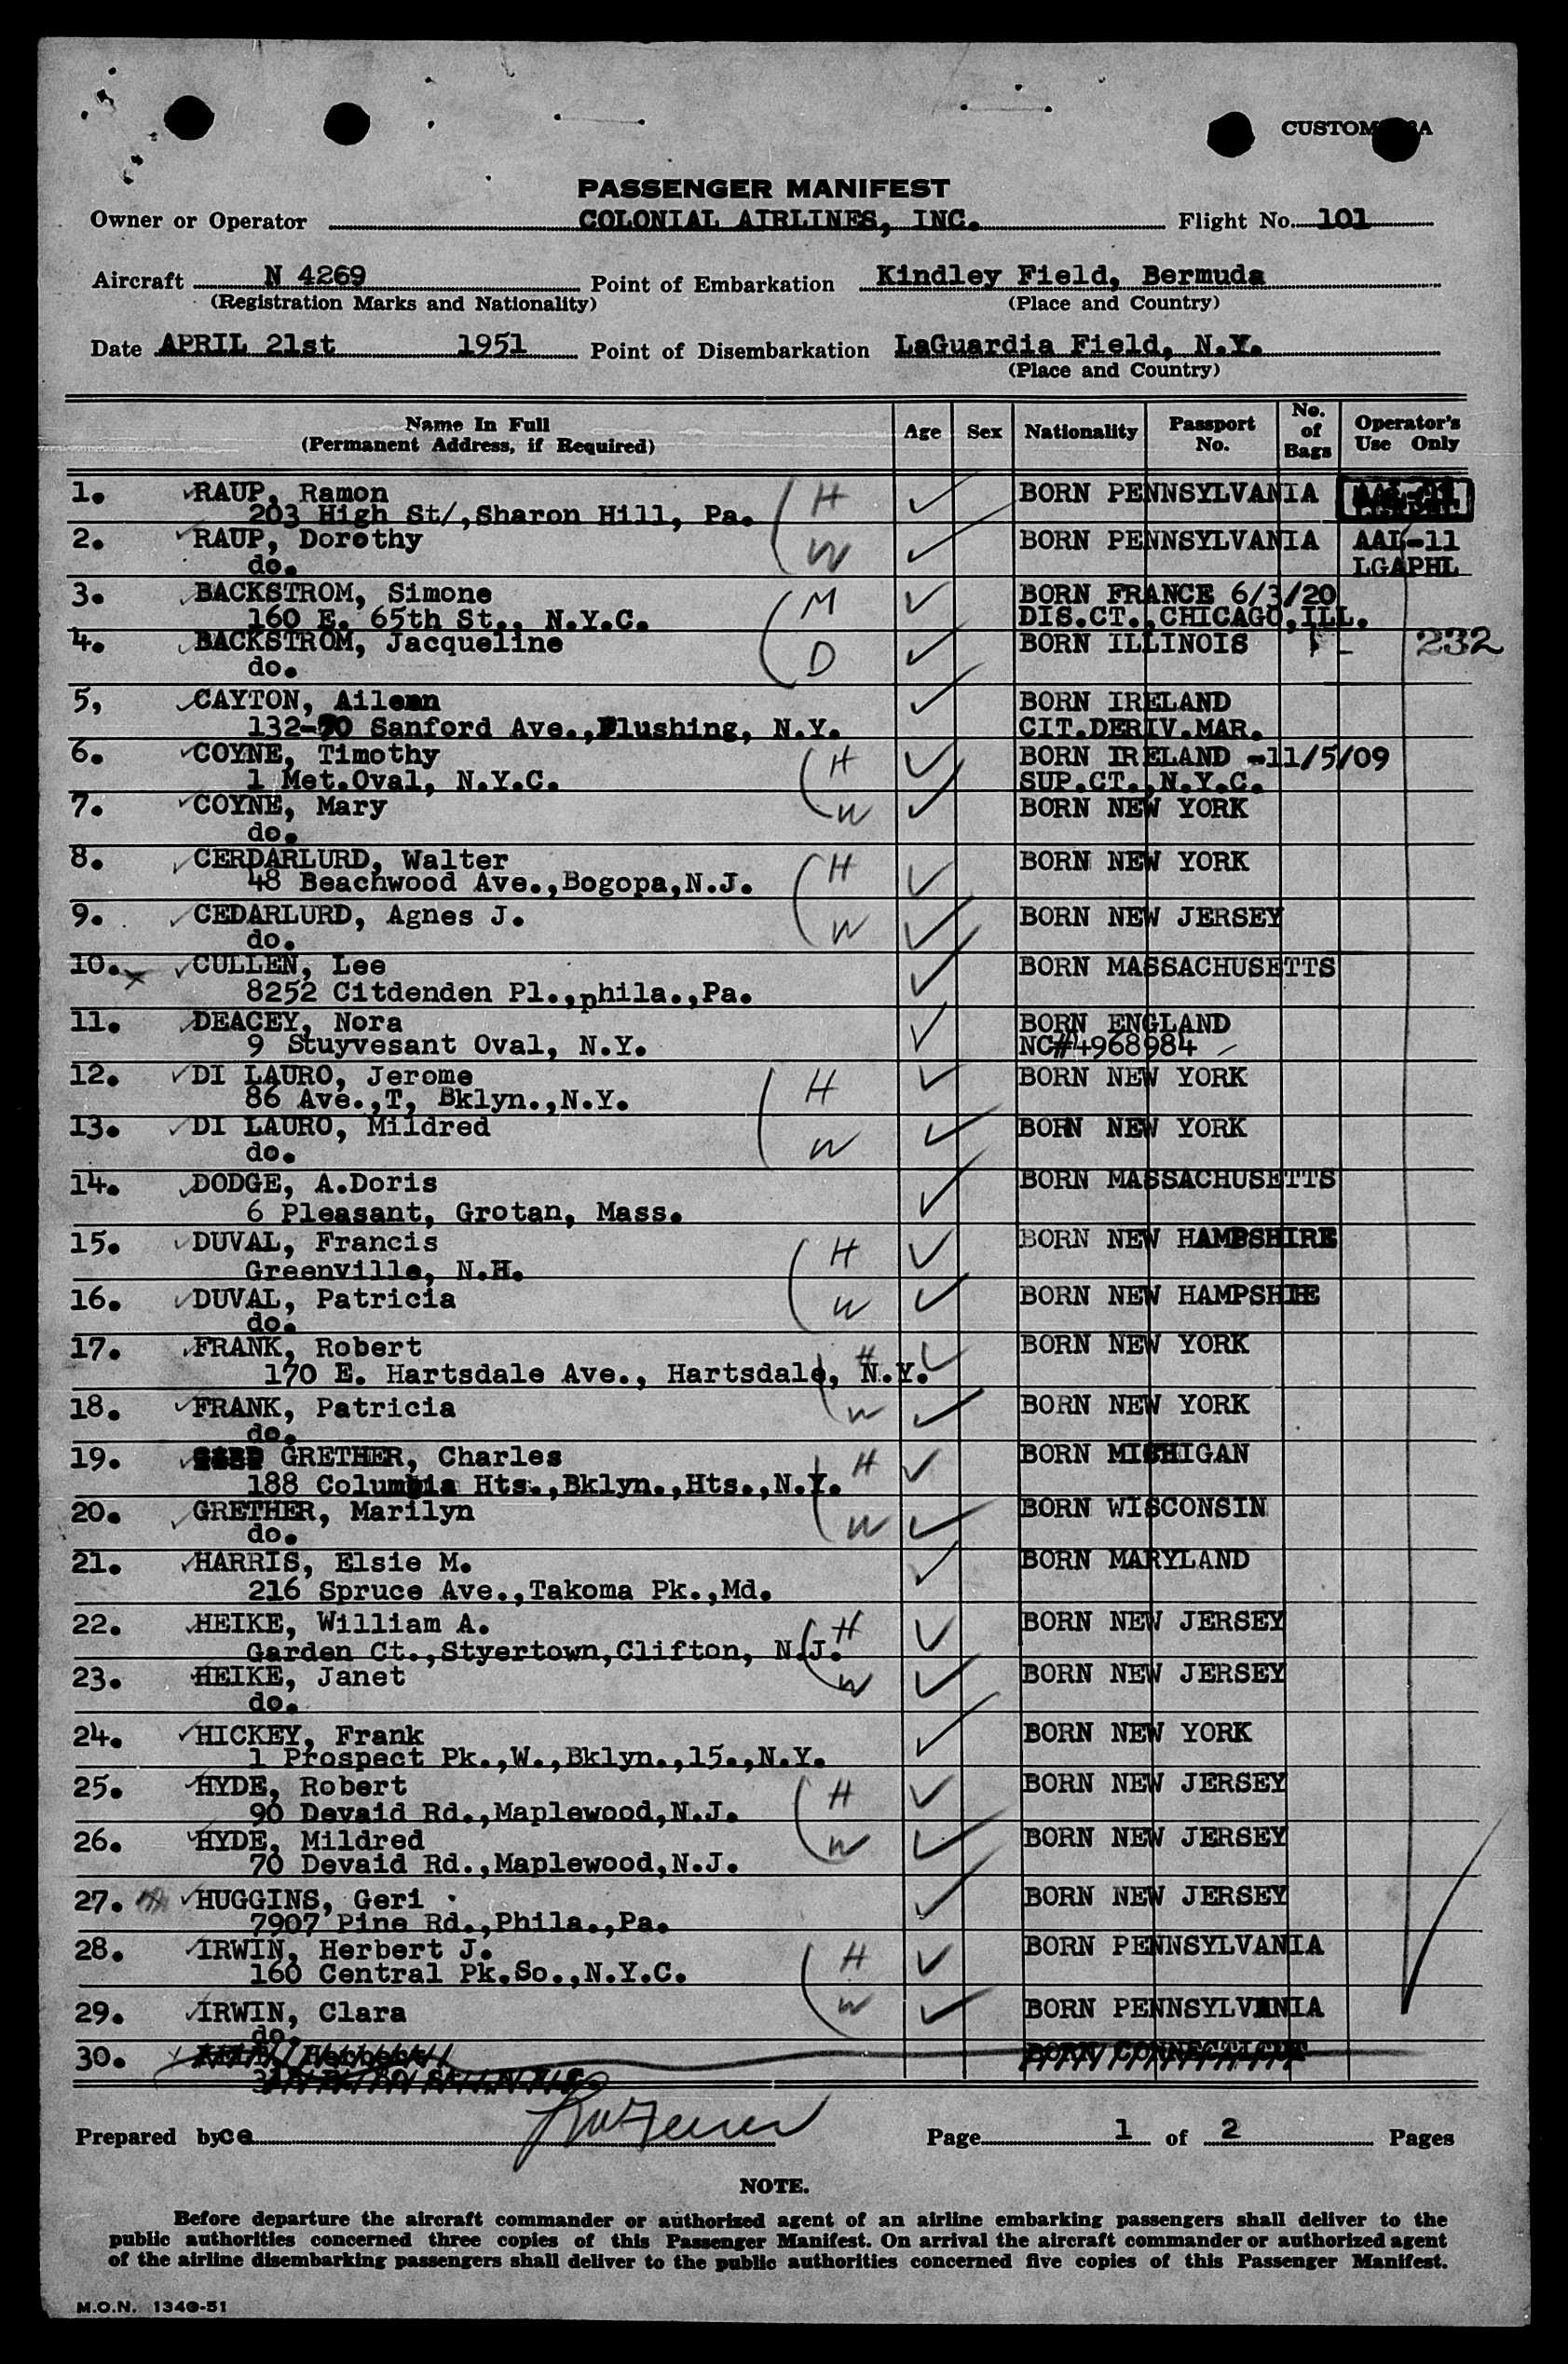 CUSTOM A
PASSENGER MANIFEST
Owner or Operator COLONIAL AIRLINES, INC. Flight No. 101
Aircraft N 4269 Point of Embarkation Kindley Field, Bermuda
(Registration Marks and Nationality) (Place and Country)
Date APRIL 21st 1951 Point of Disembarkation LaGuardia Field, N.Y.
(Place and Country)
Name In Full (Permanent Address, if Required) Age Sex Nationality Passport No. No. of Bags Operator's Use Only
1. RAUP, Ramon H BORN PENNSYLVANIA
203 High St/,Sharon Hill, Pa.
2. RAUP, Dorothy W BORN PENNSYLVANIA AAL-11
do. LGAPHL
3. BACKSTROM, Simone M BORN FRANCE 6/3/20
160 E. 65th St., N.Y.C. DIS.CT.,CHICAGO,ILL.
4. BACKSTROM, Jacqueline D BORN ILLINOIS 232
do.
5, CAYTON, Aileen BORN IRELAND
132-70 Sanford Ave.,Flushing, N.Y. CIT.DERIV.MAR.
6. COYNE, Timothy H BORN IRELAND -11/5/09
1 Met.Oval, N.Y.C. SUP.CT.,N.Y.C.
7. COYNE, Mary W BORN NEW YORK
do.
8. CERDARLURD, Walter H BORN NEW YORK
48 Beachwood Ave.,Bogopa,N.J.
9. CEDARLURD, Agnes J. W BORN NEW JERSEY
do.
10. x CULLEN, Lee BORN MASSACHUSETTS
8252 Citdenden Pl.,phila.,Pa.
11. DEACEY, Nora BORN ENGLAND
9 Stuyvesant Oval, N.Y. NC#4968984
12. DI LAURO, Jerome H BORN NEW YORK
86 Ave.,T, Bklyn.,N.Y.
13. DI LAURO, Mildred W BORN NEW YORK
do.
14. DODGE, A.Doris BORN MASSACHUSETTS
6 Pleasant, Grotan, Mass.
15. DUVAL, Francis H BORN NEW HAMPSHIRE
Greenville, N.H.
16. DUVAL, Patricia W BORN NEW HAMPSHIE
do.
17. FRANK, Robert H BORN NEW YORK
170 E. Hartsdale Ave., Hartsdale, N.Y.
18. FRANK, Patricia W BORN NEW YORK
do.
19. GRETHER, Charles H BORN MICHIGAN
188 Columbia Hts.,Bklyn.,Hts.,N.Y.
20. GRETHER, Marilyn W BORN WISCONSIN
do.
21. HARRIS, Elsie M. BORN MARYLAND
216 Spruce Ave.,Takoma Pk.,Md.
22. HEIKE, William A. H BORN NEW JERSEY
Garden Ct.,Styertown,Clifton, N.J.
23. HEIKE, Janet W BORN NEW JERSEY
do.
24. HICKEY, Frank BORN NEW YORK
1 Prospect Pk.,W.,Bklyn.,15.,N.Y.
25. HYDE, Robert H BORN NEW JERSEY
90 Devaid Rd.,Maplewood,N.J.
26. HYDE, Mildred W BORN NEW JERSEY
70 Devaid Rd.,Maplewood,N.J.
27. HUGGINS, Geri BORN NEW JERSEY
7907 Pine Rd.,Phila.,Pa.
28. IRWIN, Herbert J. H BORN PENNSYLVANIA
160 Central Pk.So.,N.Y.C.
29. IRWIN, Clara W BORN PENNSYLVANIA
do.
30. BORN CONNECTICUT
Prepared by ce Page 1 of 2 Pages
NOTE.
Before departure the aircraft commander or authorized agent of an airline embarking passengers shall deliver to the
public authorities concerned three copies of this Passenger Manifest. On arrival the aircraft commander or authorized agent
of the airline disembarking passengers shall deliver to the public authorities concerned five copies of this Passenger Manifest.
M.O.N. 1340-51